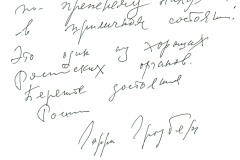 по-прежнему наход
в приличном состоянии.
Это один из хороших
Российских органов.
Берегите достояние
России
Гарри Гродберг